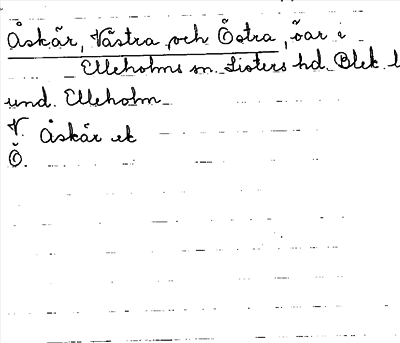 Åskär, Västra och Östra, öar i
Elleholms sn. Listers hd. Blek. l
und. Elleholm
V. Åskär ek
Ö.